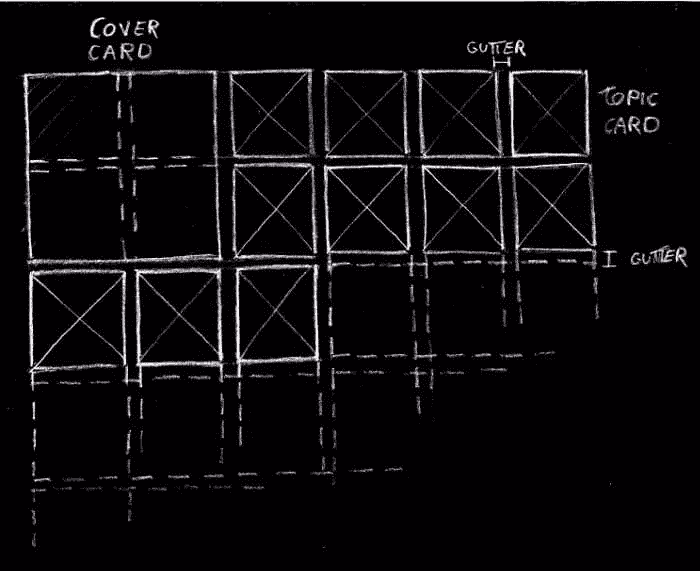 COVER
CARD
GUTTER
TOPIC
CARD
I GUTTER